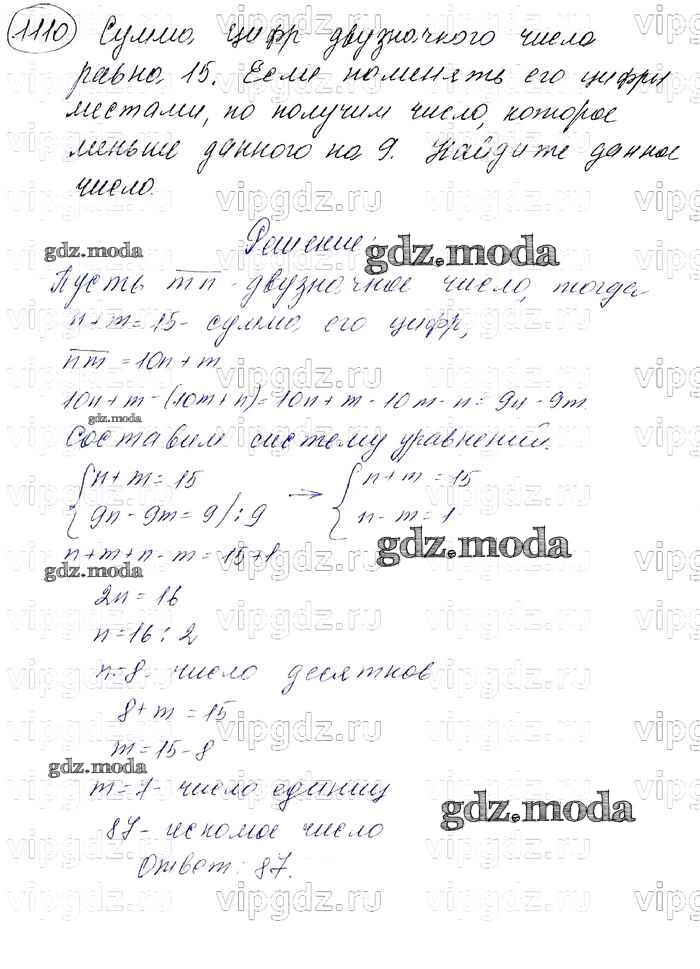 1110 Сумма цифр двузначного числа
равна 15. Если поменять его цифры
местами, то получим число, которое
меньше данного на 9. Найдите данное
число.
Решение:
Пусть m̅n̅ - двузначное число, тогда
n+m=15 - сумма его цифр,
n̅m̅ = 10n+m
10n+m-(10m+n)=10n+m-10m-n=9n-9m
Составим систему уравнений.
{ n+m=15 → { n+m=15
{ 9n-9m=9 /:9 { n-m=1
n+m+n-m=15+1
2n=16
n=16:2
n=8 - число десятков
8+m=15
m=15-8
m=7 - число единиц
87 - искомое число
Ответ: 87.
gdz.moda
vipgdz.ru